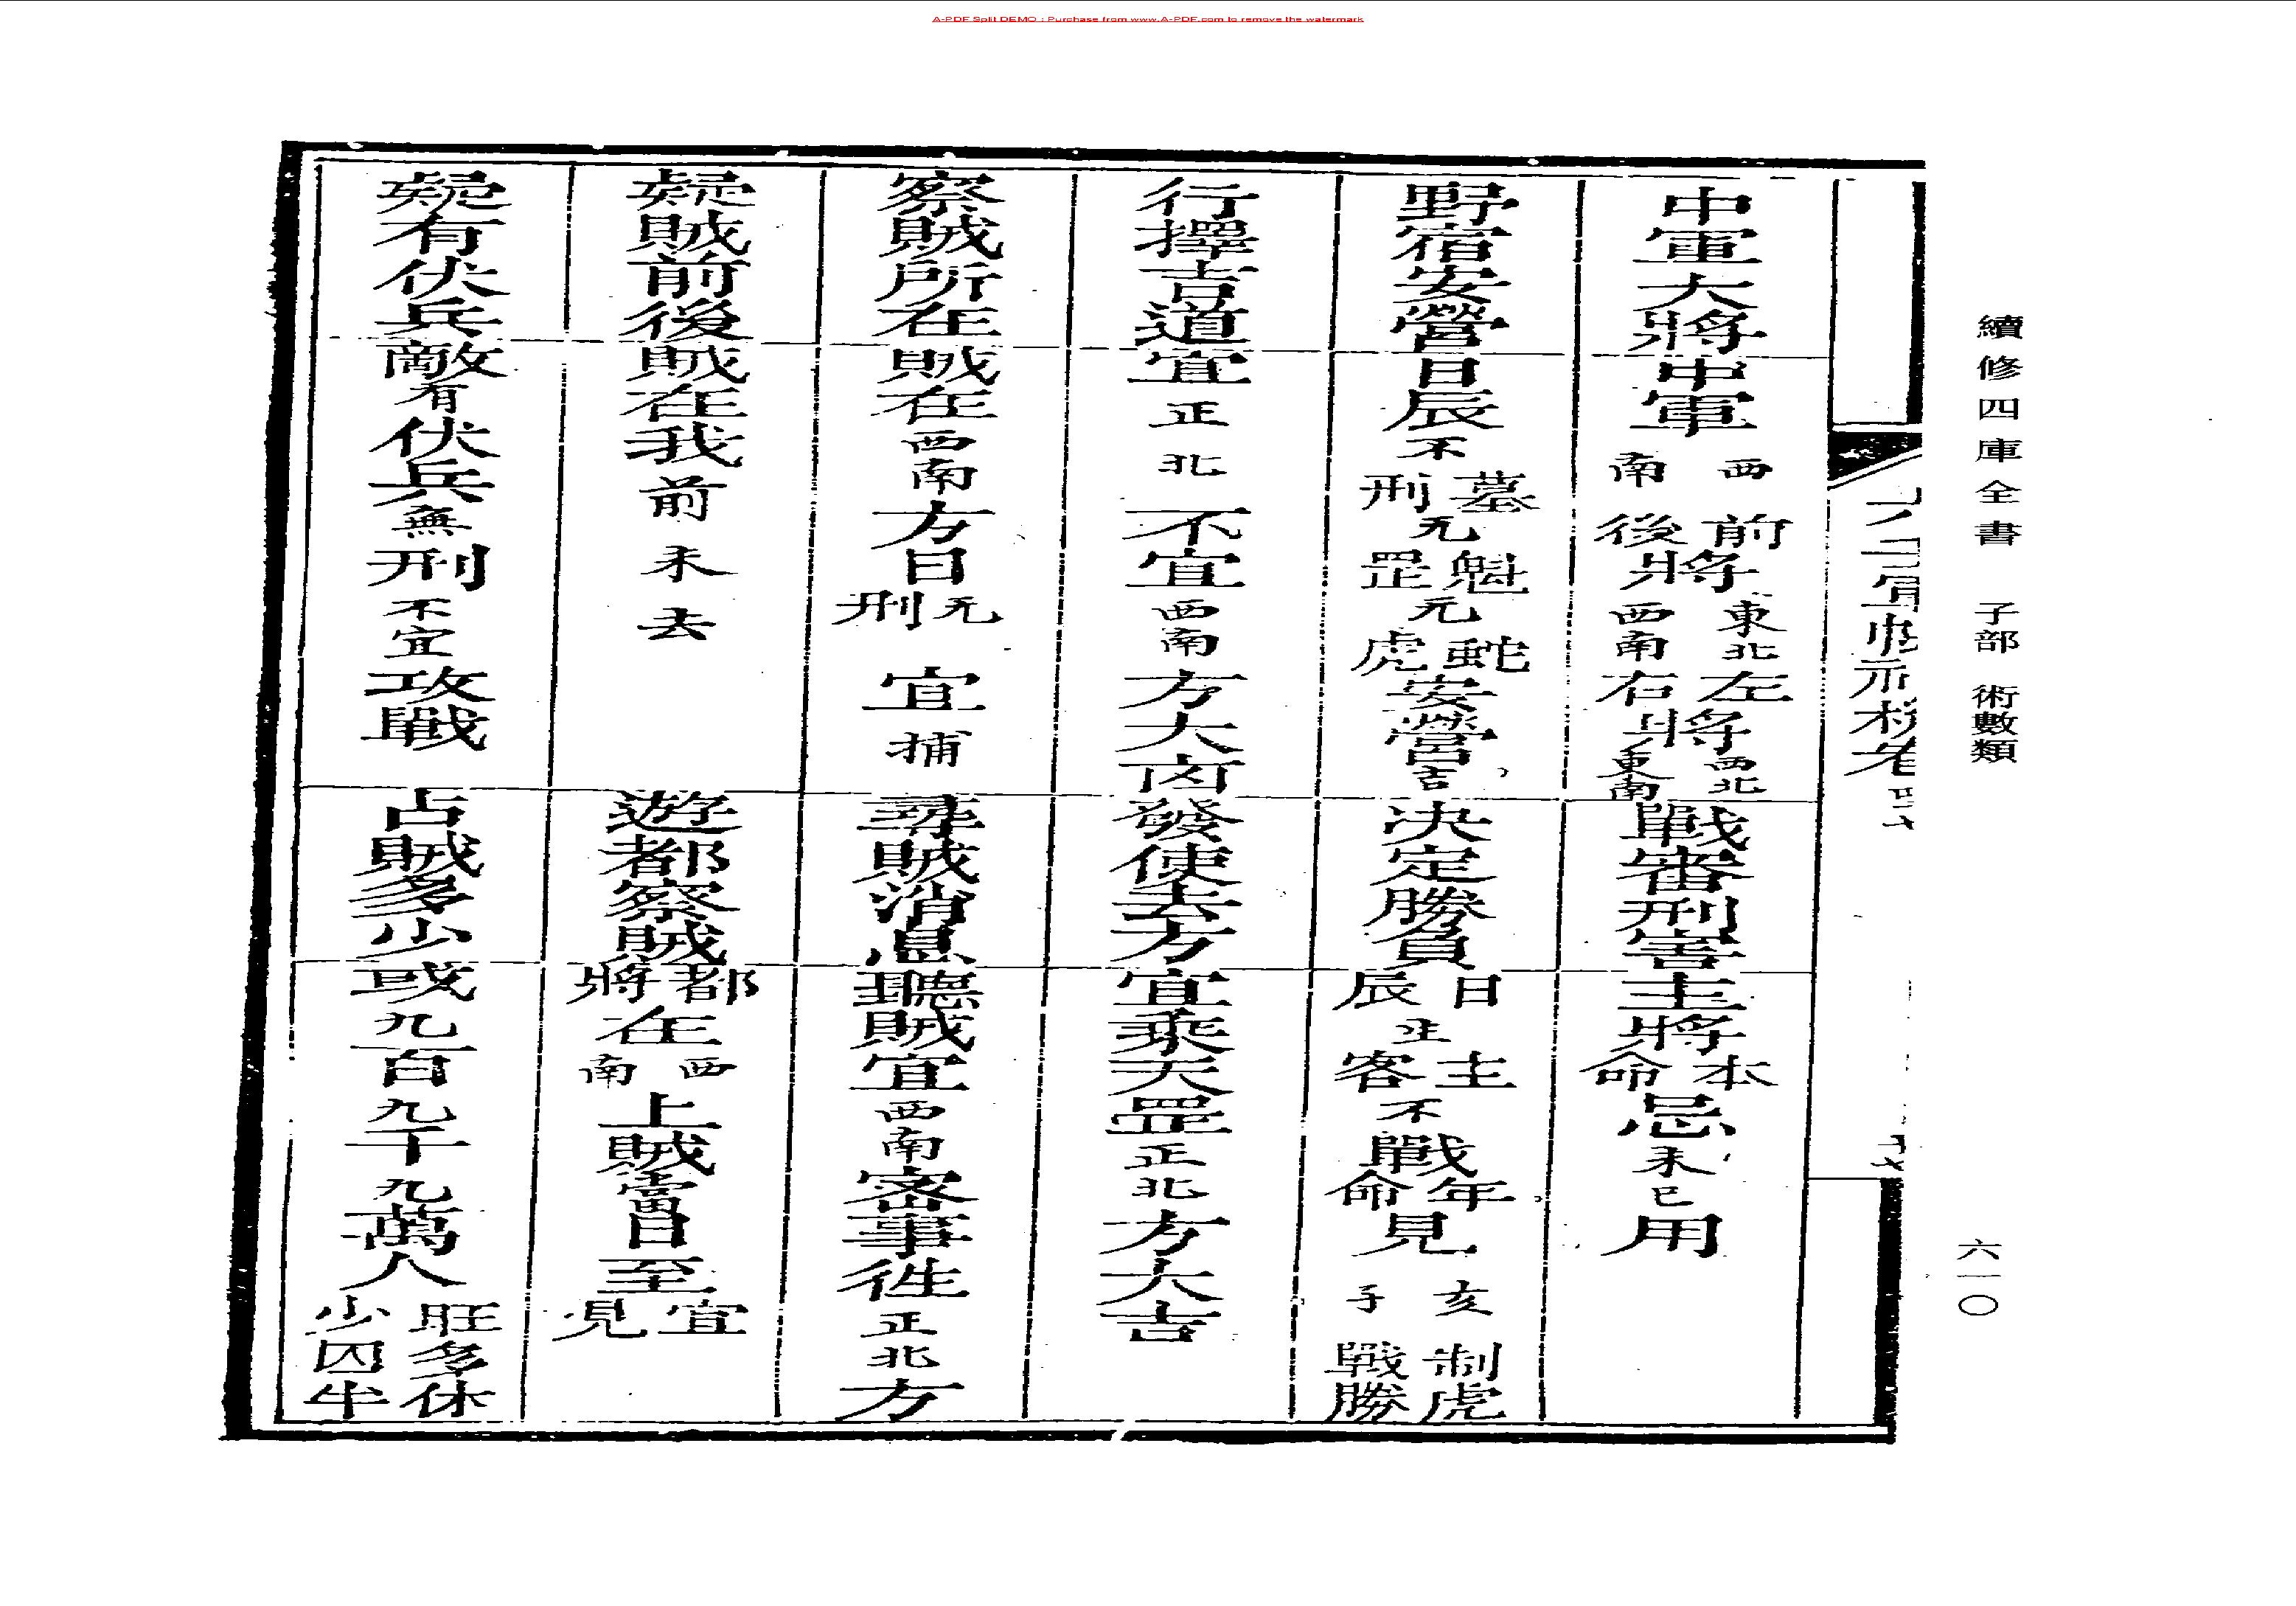 A-PDF Split DEMO : Purchase from www.A-PDF.com to remove the watermark
續修四庫全書 子部 術數類
六一〇
中軍大將中軍西南前後將東北西南左右將西北東南戰審刑害主將本命忌未巳用
野宿安營日辰不墓刑元魁罡元蛇虎安營吉決定勝負日辰生主客不戰年命見亥子制虎戰勝
行擇吉道宜正北不宜西南方大凶發使去方宜乘天罡正北方大吉
察賊所在賊在西南方日元刑宜捕尋賊消息聽賊宜西南密事往正北方
疑賊前後賊在我前未去遊都察賊都將在西南上賊當日至宜見
疑有伏兵敵有伏兵無刑不宜攻戰占賊多少或九百九千九萬人旺多休少囚半